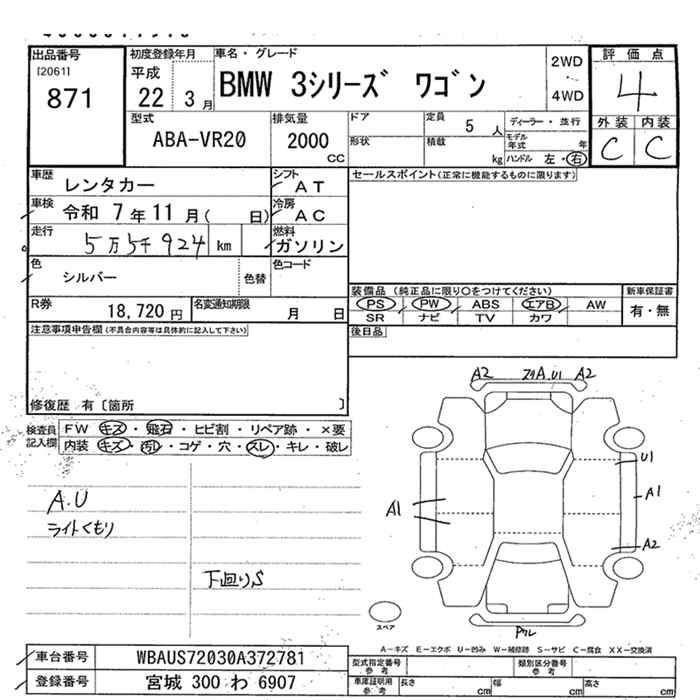 出品番号
[2061]
871
初度登録年月
平成
22 3月
車名・グレード
BMW 3シリーズ ワゴン
2WD
・
4WD
評価点
4
外装 内装
C C
型式
ABA-VR20
排気量
2000
CC
ドア
形状
定員
5人
積載
kg
ディーラー・並行
モデル年式 年
ハンドル 左・右
車歴
レンタカー
シフト
AT
車検
令和 7年11月( 日)
冷房
AC
走行
5万5千924 km
燃料
ガソリン
色
シルバー
色替
色コード
R券
18,720円
名変通知期限
月 日
セールスポイント(正常に機能するものに限ります)
装備品 (純正品に限り〇をつけてください)
新車保証書
PS PW ABS エアB AW
有・無
SR ナビ TV カワ
後日品
注意事項申告欄(不具合内容等は具体的に記入して下さい)
修復歴 有〔箇所 〕
検査員記入欄
FW キズ・飛石・ヒビ割・リペア跡・×要
内装 キズ・汚れ・コゲ・穴・スレ・キレ・破レ
A.U
ライトくもり
下廻りS
A2 A.U1 A2
U1
A1
A1
A2
スペア
A-キズ E-エクボ U-凹み W-補修跡 S-サビ C-腐食 XX-交換済
車台番号
WBAUS72030A372781
登録番号
宮城 300 わ 6907
型式指定番号
参考
類別区分番号
参考
車庫証明用
参考
長さ cm
幅 cm
高さ cm